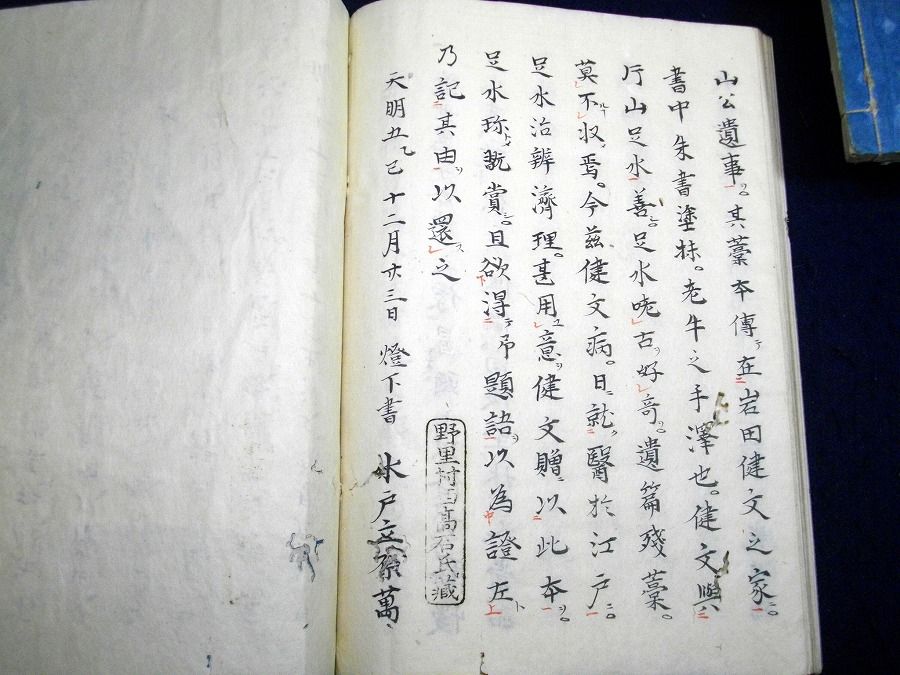 山公遺事。其藁本傳在岩田健文之家。
書中朱書塗抹。老牛之手澤也。健文與
斤山足水善。足水咾古好奇。遺篇殘藁。
莫不収焉。今茲健文病。日就醫於江戸。
足水治辨濟理。甚用意。健文贈以此本。
足水珎翫賞。且欲淂予題語。以為證左
乃記其由以還之
天明五乙巳十二月廿三日 燈下書 水戸立原萬
野里村 高石氏藏